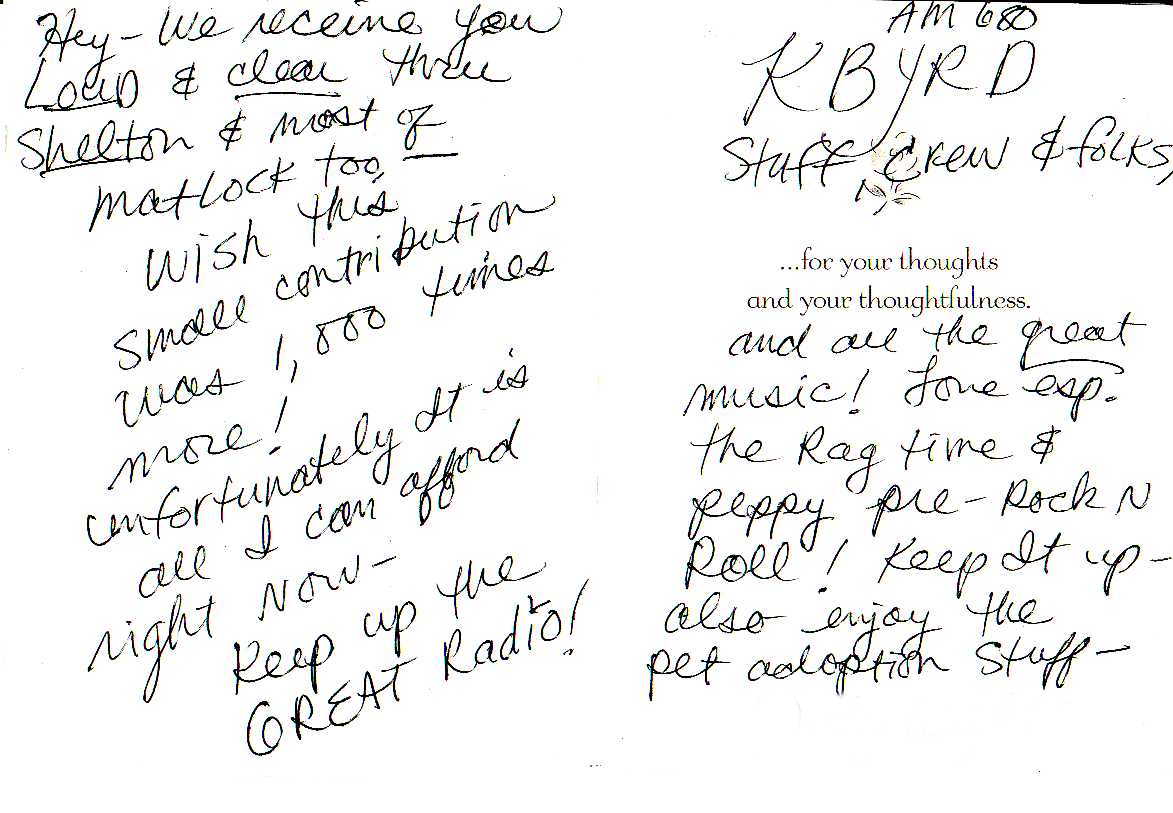 Hey - We receive you
Loud & clear thru
Shelton & most of
Matlock too,
Wish this
small contribution
was 1,000 times
more!
unfortunately It is
all I can afford
right now -
Keep up the
GREAT Radio!
AM 680
KBYRD
Staff, Crew & folks,
...for your thoughts
and your thoughtfulness.
and all the great
music! Love esp.
the Rag time &
peppy pre-Rock N
Roll! Keep It up -
also enjoy the
pet adoption stuff -